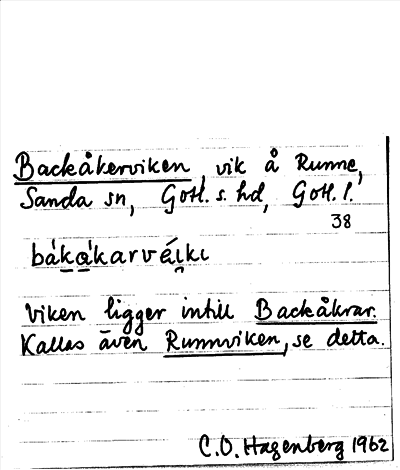 Backåkerviken, vik å Runne,
Sanda sn, Gotl. s. hd, Gotl. l.
38
bákákarvéıkı
Viken ligger intill Backåkrar.
Kallas även Runnviken, se detta.
C.O. Hagenberg 1962